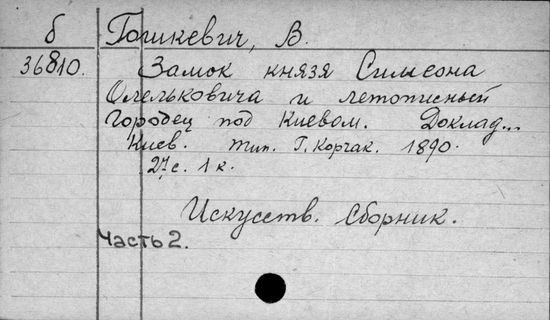 б Гошкевич, В.
36810. Замок князя Симеона
Олельковича и летописный
Городец под Киевом. Доклад...
Киев. тип. Г. Корчак. 1890.
27 с. 1 к.
Искусств. сборник.
Часть 2.